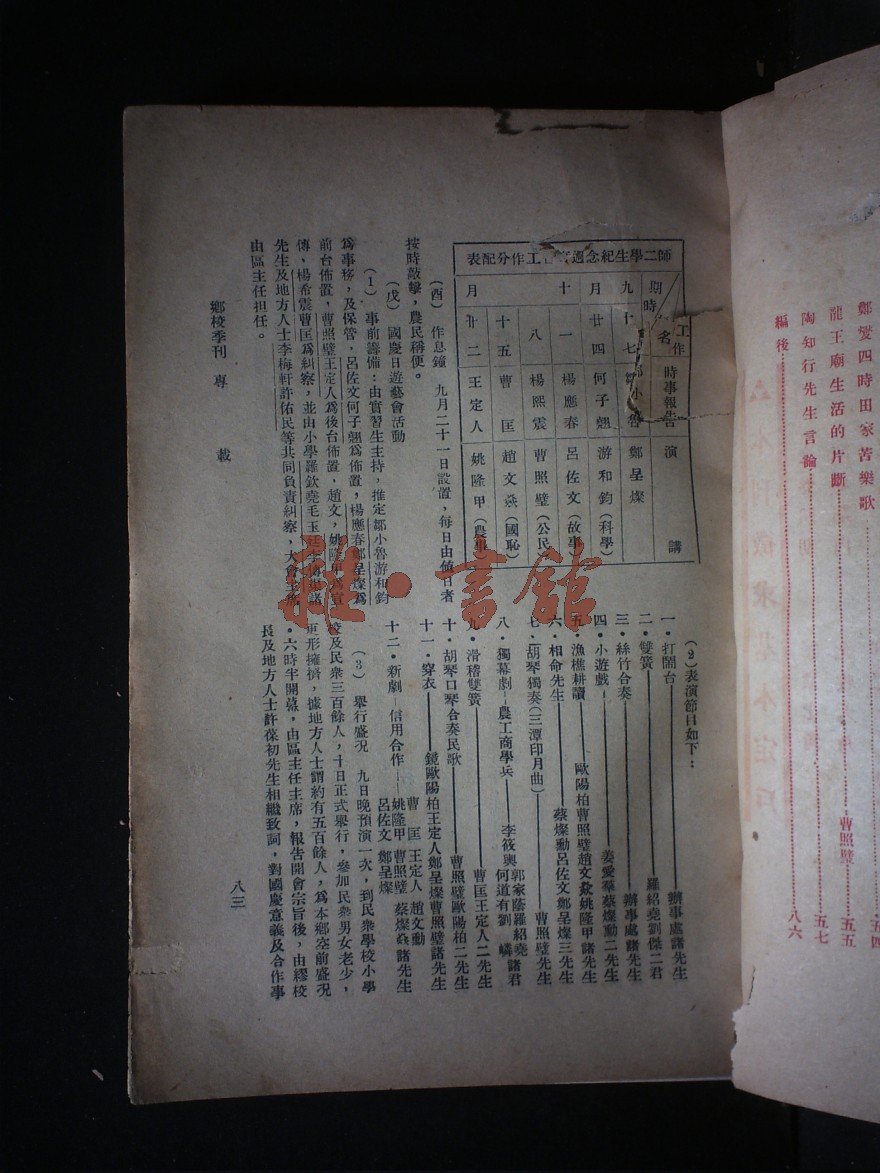 鄭燮四時田家苦樂歌
龍王廟生活的片斷 曹照璧 五五
陶知行先生言論 五七
編後 八六
師二學生紀念週 工作分配表
期時 名 工作 時事報告 演講
九月 十七 鄒小魯 鄭呈燦
廿四 何子翹 游和鈞(科學)
十月 一 楊應春 呂佐文(故事)
八 楊熙震 曹照璧(公民)
十五 曹匡 趙文(國恥)
廿二 王定人 姚隆甲(農事)
(酉) 作息鐘 九月二十一日設置,每日由値日者
按時敲擊,農民稱便。
(戊) 國慶日遊藝會活動
(1) 事前籌備:由實習生主持,推定鄒小魯游和鈞
爲事移,及保管,呂佐文何子翹爲佈置,楊應春鄭呈燦爲
前台佈置,曹照璧王定人爲後台佈置,趙文,姚隆甲爲宣
傳,楊希震曹匡爲糾察,並由小學羅欽堯毛玉廷李 諸
先生及地方人士李梅軒許佑民等共同負責糾察,大會主席
由區主任担任。
(2)表演節目如下:
一・打鬧台 辦事處諸先生
二・雙簧 羅紹堯劉傑二君
三・絲竹合奏 辦事處諸先生
四・小遊戲 姜愛羣蔡燦勳二先生
五・漁樵耕讀 歐陽柏曹照璧趙文姚隆甲諸先生
六・相命先生 蔡燦勳呂佐文鄭呈燦三先生
七・胡琴獨奏(三潭印月曲) 曹照璧先生
八・獨幕劇—農工商學兵 李筱輿郭家蔭羅紹堯何道有劉嶙諸君
九・滑稽雙簧 曹匡王定人二先生
十・胡琴口琴合奏民歌 曹照璧歐陽柏二先生
十一・穿衣鏡 歐陽柏王定人鄭呈燦曹照璧諸先生
十二・新劇—信用合作 曹匡 王定人 趙文勳 姚隆甲 曹照璧 蔡燦 呂佐文 鄭呈燦 諸先生
(3) 舉行盛況 九日晚預演一次,到民衆學校小學
校及民衆三百餘人,十日正式舉行,參加民衆男女老少,
更形擁擠,據地方人士謂約有五百餘人,爲本鄉空前盛況
・六時半開幕,由區主任主席,報告開會宗旨後,由繆校
長及地方人士許葆初先生相繼致詞,對國慶意義及合作事
鄉校季刊 專載 八三
雜・書館